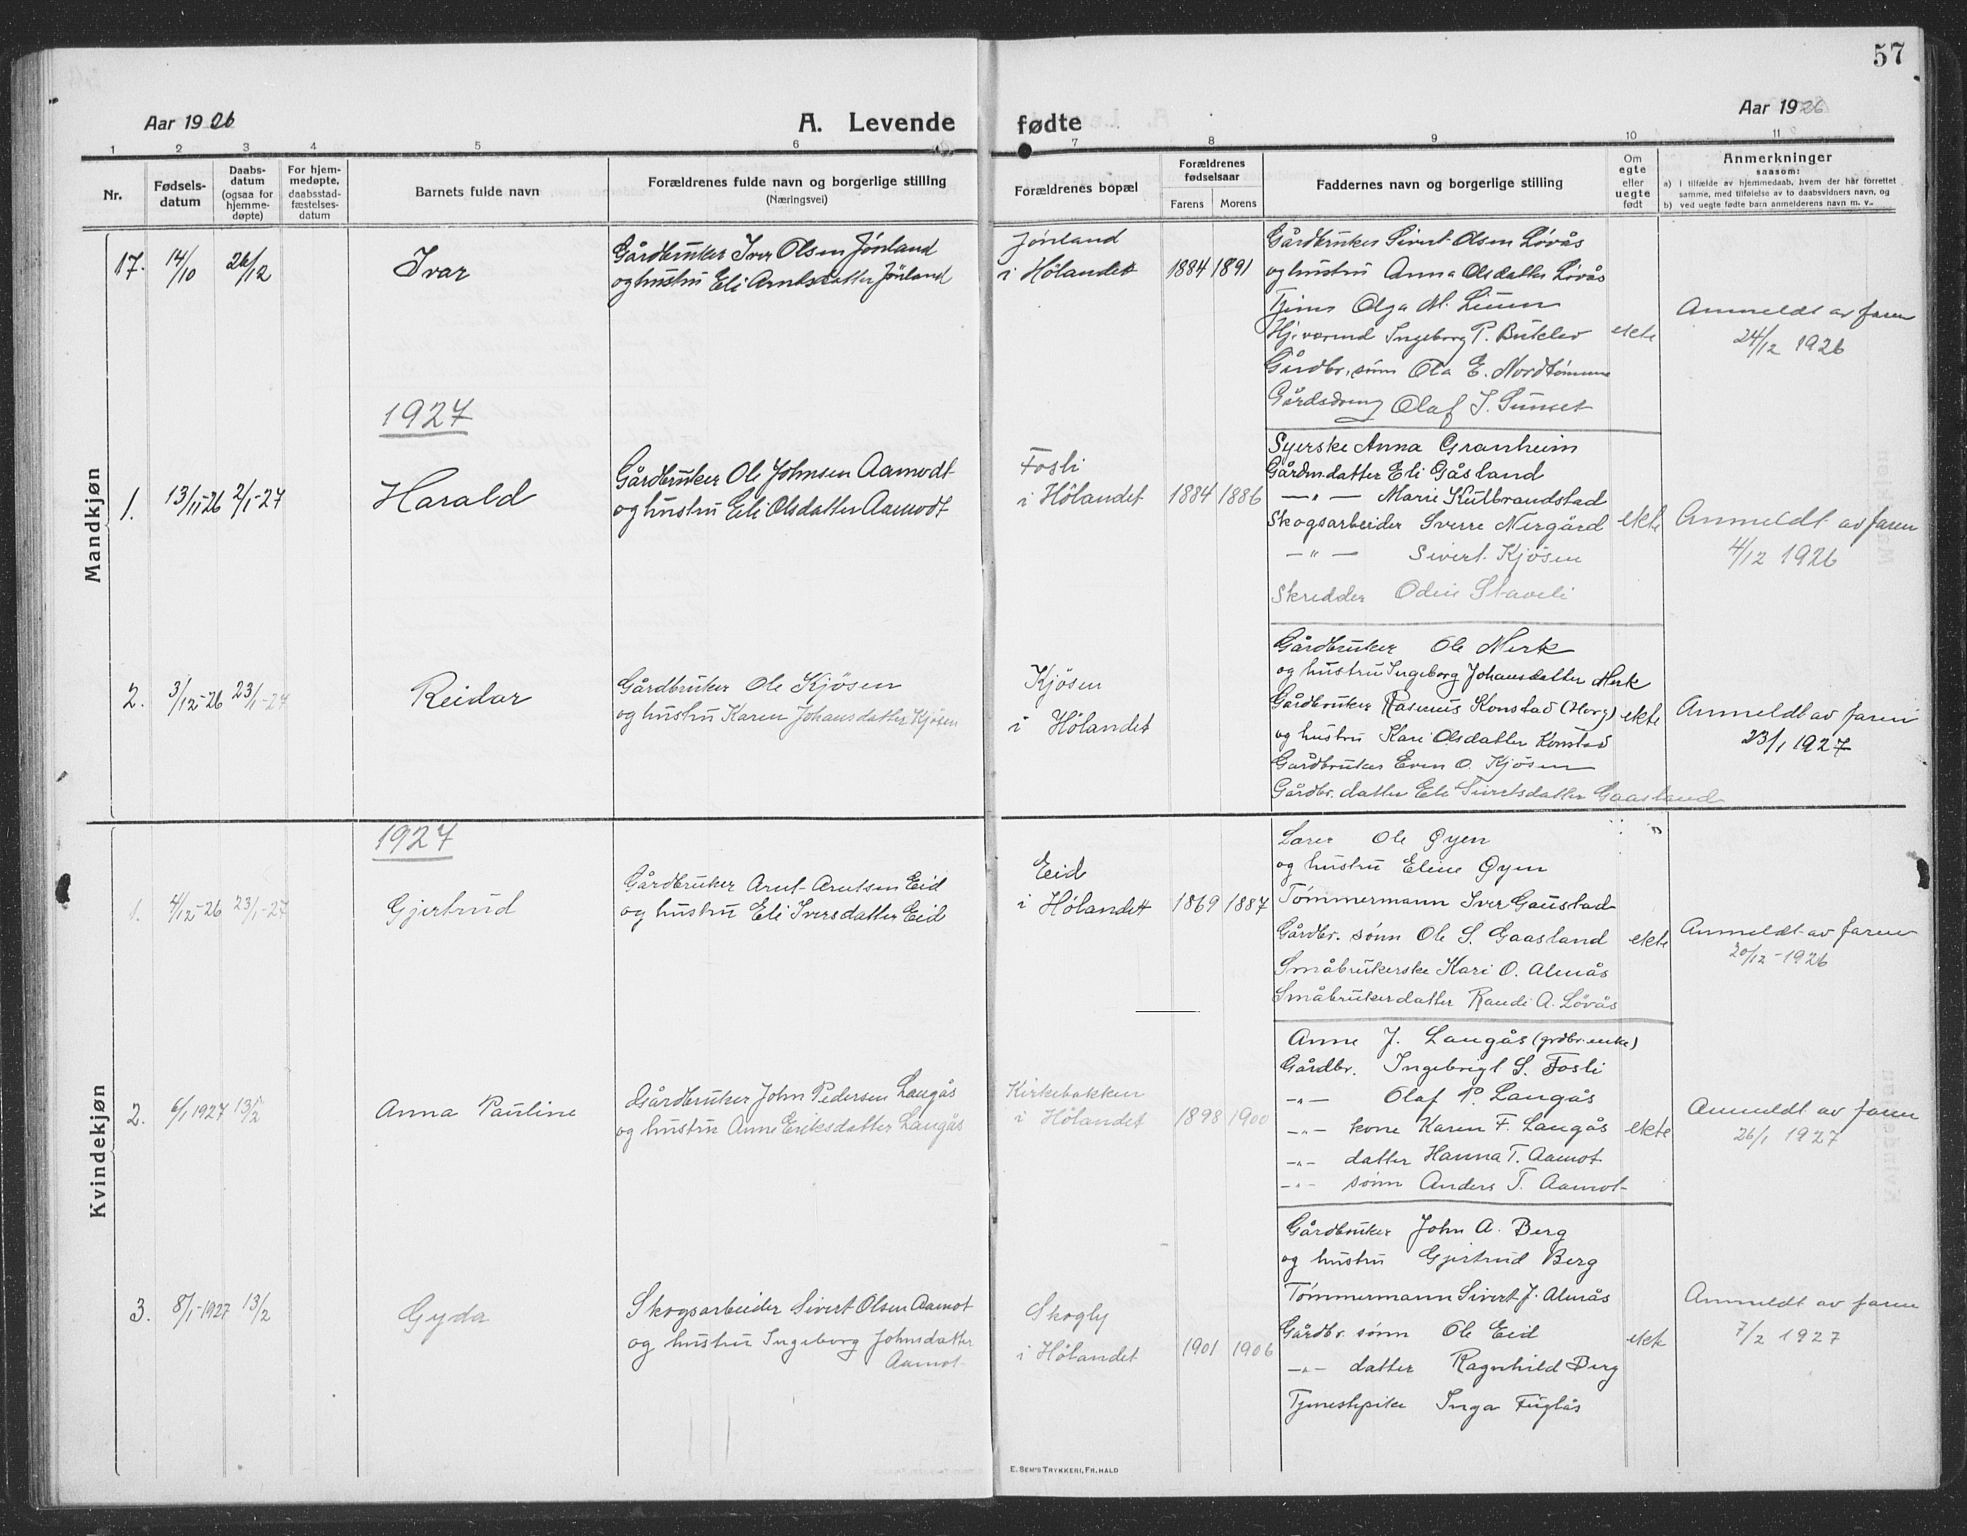 57
Aar 1926
A. Levende fødte
Aar 1926
1 2 3 4 5 6 7 8 9 10 11
Nr.
Fødsels-
datum
Daabs-
datum
(ogsaa for
hjemme-
døpte)
For hjem-
medøpte,
daabsstad-
fæstelses-
datum
Barnets fulde navn
Forældrenes fulde navn og borgerlige stilling
(Næringsvei)
Forældrenes bopæl
Forældrenes
fødselsaar
Farens
Morens
Faddernes navn og borgerlige stilling
Om
egte
eller
uegte
født
Anmerkninger
saasom:
a) i tilfælde av hjemmedaab, hvem der har forrettet
samme, med tilføielse av to daabsvidners navn, og
b) ved uegte fødte barn anmelderens navn m. v.
Mandkjøn
17. 14/10 26/12
Ivar
Gårdbruker Iver Olsen Jønland
og hustru Eli Arntsdatter Jønland
Jønland
i Hølandet
1884 1891
Gårdbruker Sivert Olsen Løvås
og hustru Anna Olsdatter Løvås
Olga M.
Ingeborg P.
Gårdbr. sønn Ola E. Nordtømme
Gårdsdreng Olaf
ekte
Anmeldt av faren
24/12 1926
1927
1. 13/11-26 2/1-27
Harald
Gårdbruker Ole Johnsen Aamodt
og hustru Eli Olsdatter Aamodt
Fosli
i Hølandet
1884 1886
Syerske Anna Granheim
Gårdm.datter Eli Gåsland
—„— Marie Kulbrandstad
Skogsarbeider Sverre Nergård
—„— Sivert Kjøsen
Skredder Odin Staveli
ekte
Anmeldt av faren
4/12 1926
2. 3/12-26 23/1-27
Reidar
Gårdbruker Ole Kjøsen
og hustru Karen Johansdatter Kjøsen
Kjøsen
i Hølandet
Gårdbruker Ole Merk
og hustru Ingeborg Johansdatter Merk
Gårdbruker Rasmus Konstad (Horg)
og hustru Kari Olsdatter Konstad
Gårdbruker Even O. Kjøsen
Gårdbr. datter Eli Sivertsdatter Gaasland
ekte
Anmeldt av faren
23/1 1927
Kvindekjøn
1927
1. 4/12-26 23/1-27
Gjertrud
Gårdbruker Arnt Arntsen Eid
og hustru Eli Iversdatter Eid
Eid
i Hølandet
1869 1887
Lærer Ole Øyen
og hustru Eline Øyen
Tømmermann Iver Gaustad
Gårdbr. sønn Ole S. Gaasland
Småbrukerske Kari O. Almås
Småbrukerdatter Randi A. Løvås
ekte
Anmeldt av faren
20/12-1926
2. 6/1 1927 13/2
Anna Pauline
Gårdbruker John Pedersen Langås
og hustru Anne Eriksdatter Langås
Kirkebakken
i Hølandet
1898 1900
Anne J. Langås (grdbr. enke)
Gårdbr. Ingebrigt S. Fosli
—„— Olaf P. Langås
—„— kone Karen F. Langås
—„— datter Hanna T. Aamot
—„— sønn Anders T. Aamot
ekte
Anmeldt av faren
26/1 1927
3. 8/1-1927 13/2
Gyda
Skogsarbeider Sivert Olsen Aamot
og hustru Ingeborg Johnsdatter
Aamot
Skogly
i Hølandet
1901 1906
Gårdbruker John A. Berg
og hustru Gjertrud Berg
Tømmermann Sivert J. Almås
Gårdbr. sønn Ole Eid
—„— datter Ragnhild Berg
Tjenestepike Inga Fuglås
ekte
Anmeldt av faren
7/2 1927
E. SEM'S TRYKKERI, FR.HALD